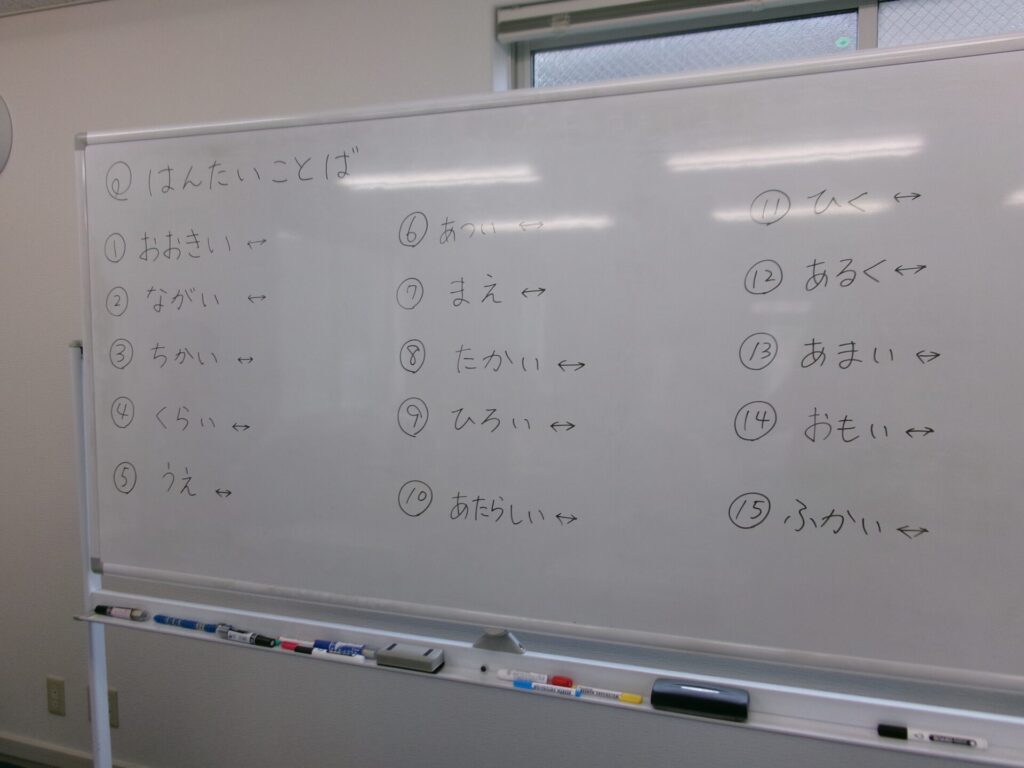 ② はんたいことば
① おおきい ↔
② ながい ↔
③ ちかい ↔
④ くらい ↔
⑤ うえ ↔
⑥ あつい ↔
⑦ まえ ↔
⑧ たかい ↔
⑨ ひろい ↔
⑩ あたらしい ↔
⑪ ひく ↔
⑫ あるく ↔
⑬ あまい ↔
⑭ おもい ↔
⑮ ふかい ↔